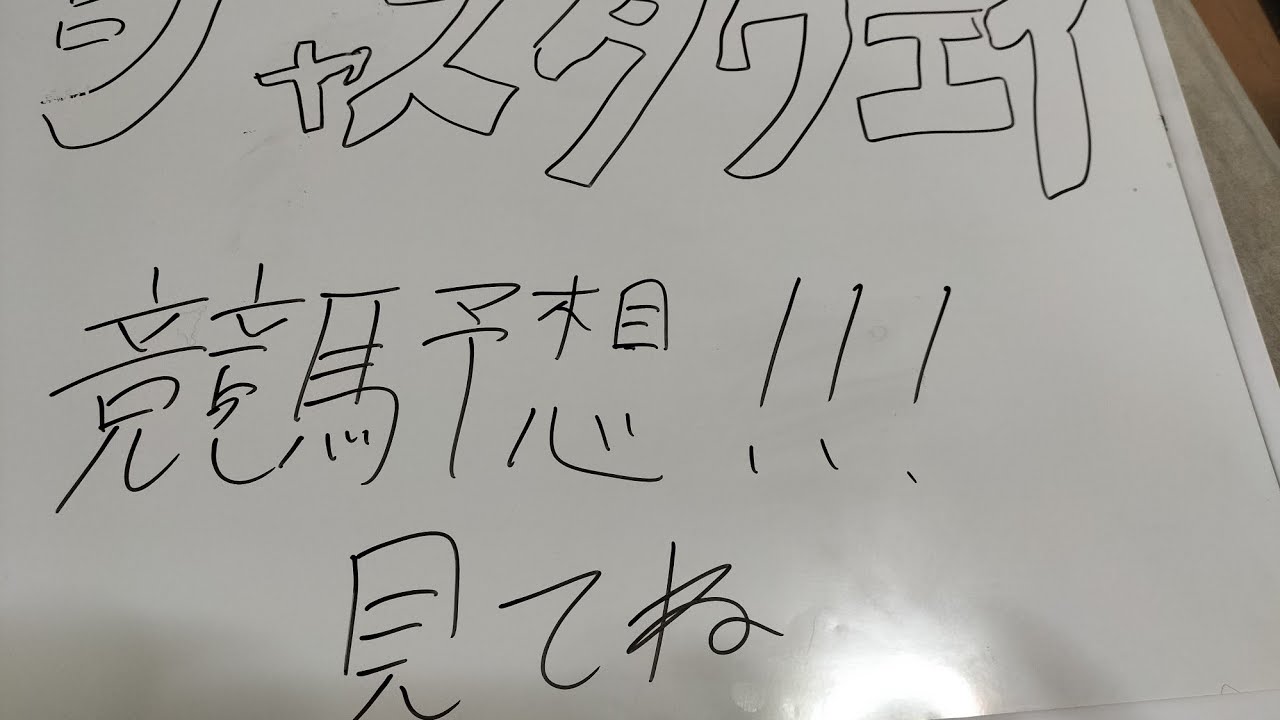 ジャスタウェイ
競馬予想!!!
見てね